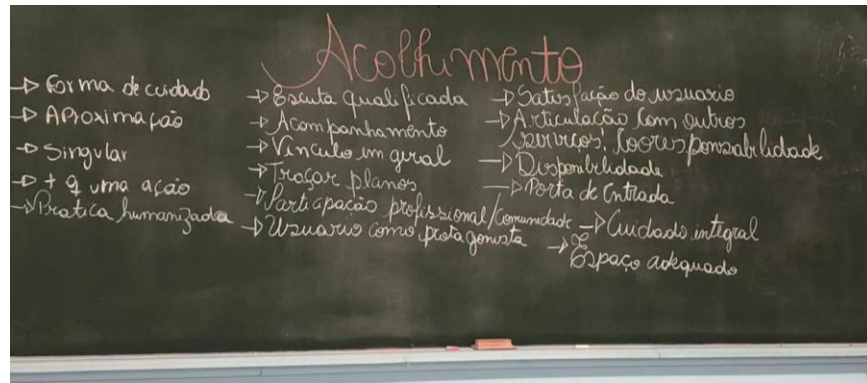 Acolhimento
→ Forma de cuidado
→ Aproximação
→ Singular
→ + q uma ação
→ Pratica humanizada
→ Escuta qualificada
→ Acompanhamento
→ Vinculo em geral
→ Traçar planos
→ Participação profissional/comunidade
→ Usuario como protagonista
→ Satisfação do usuario
→ Articulação com outros
serviços! Coorresponsabilidade
→ Disponibilidade
→ Porta de Entrada
→ Cuidado integral
→ Espaço adequado